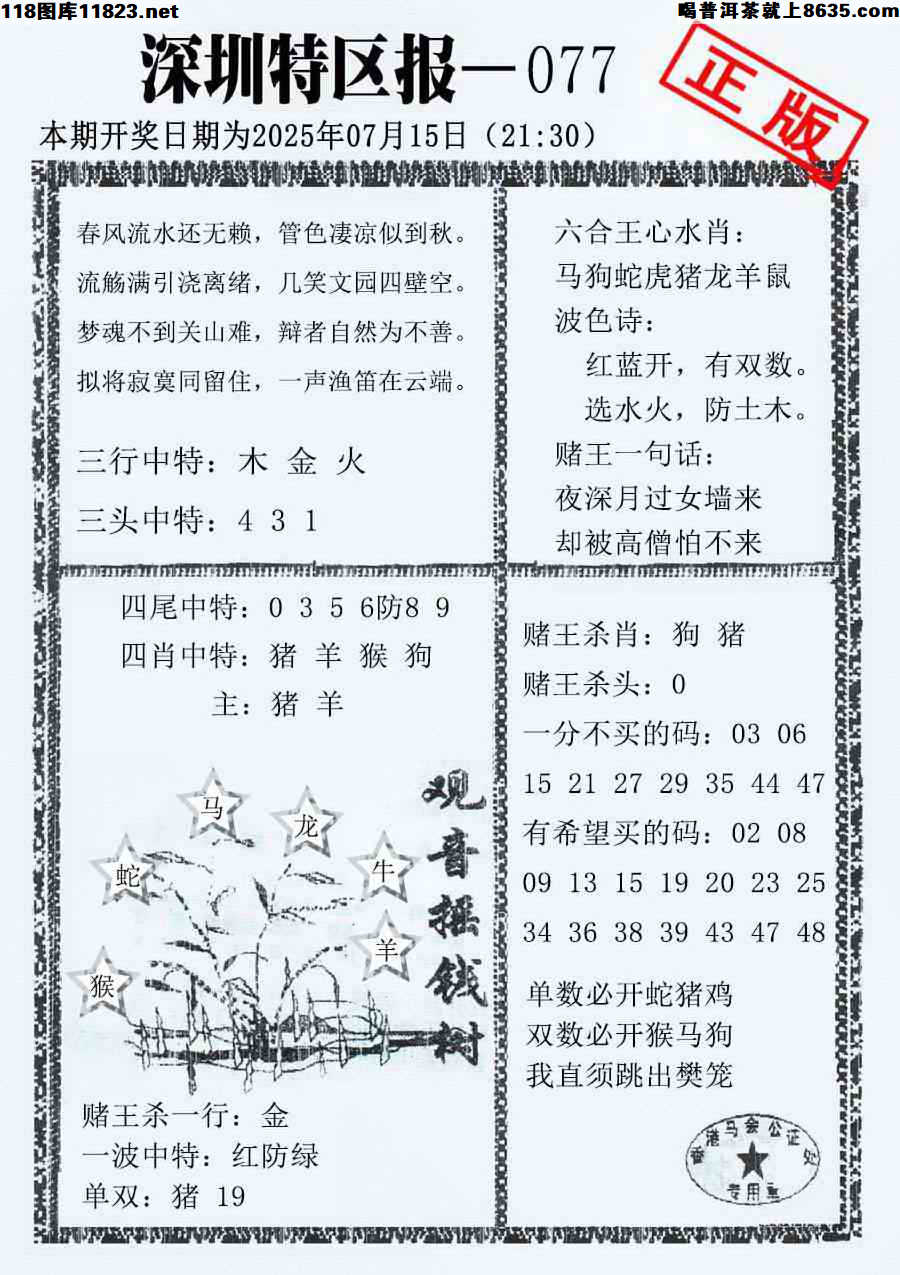 118图库11823.net
喝普洱茶就上8635.com
深圳特区报—077
正版
本期开奖日期为2025年07月15日（21:30）
春风流水还无赖，管色凄凉似到秋。
流觞满引浇离绪，几笑文园四壁空。
梦魂不到关山难，辩者自然为不善。
拟将寂寞同留住，一声渔笛在云端。
三行中特：木 金 火
三头中特：4 3 1
六合王心水肖：
马狗蛇虎猪龙羊鼠
波色诗：
红蓝开，有双数。
选水火，防土木。
赌王一句话：
夜深月过女墙来
却被高僧怕不来
四尾中特：0 3 5 6防8 9
四肖中特：猪 羊 猴 狗
主：猪 羊
马
龙
蛇
牛
羊
猴
观音摇钱树
赌王杀一行：金
一波中特：红防绿
单双：猪 19
赌王杀肖：狗 猪
赌王杀头：0
一分不买的码：03 06
15 21 27 29 35 44 47
有希望买的码：02 08
09 13 15 19 20 23 25
34 36 38 39 43 47 48
单数必开蛇猪鸡
双数必开猴马狗
我直须跳出樊笼
香港马会公证处
专用章